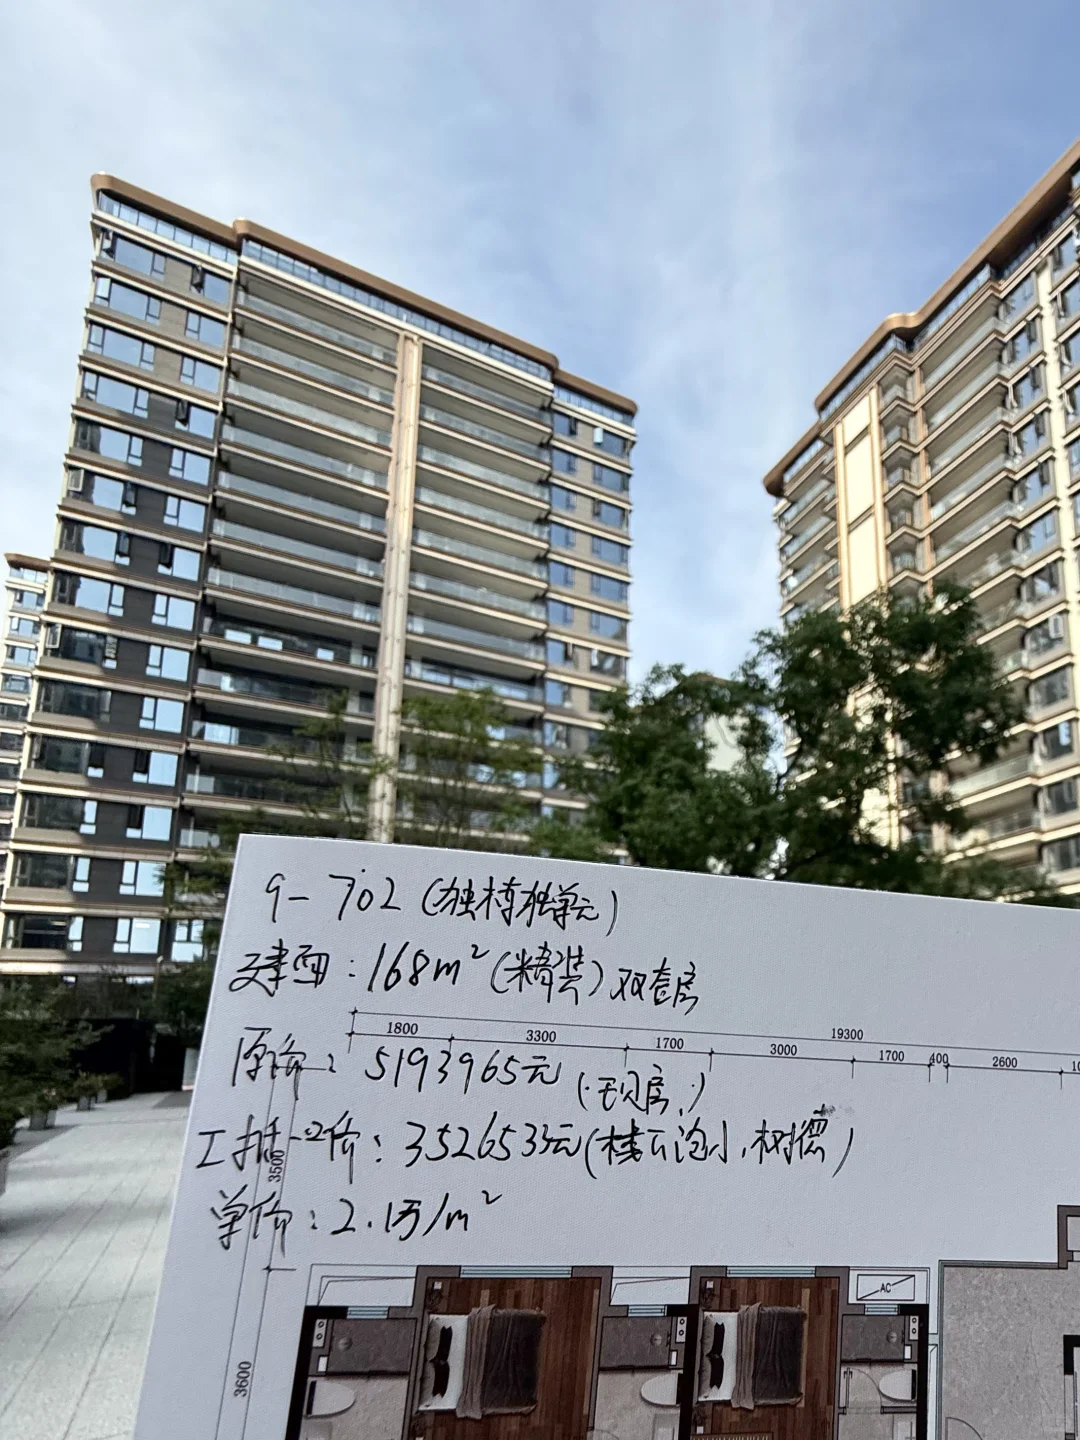 9-702（独栋独单元）
建面：168m²（精装）双套房
19300
1800 3300 1700 3000 1700 400 2600
原价：5193965元（现房）
工抵一口价：3526533元（栈石沱小，树德）
3500
单价：2.1万/m²
AC
3600